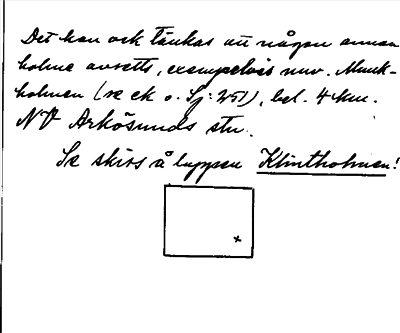 Det kan ock tänkas att någon annan
holme avsetts, exempelvis nuv. Munk-
holmen (se ek o. Sj: 251), bel. 4 km.
NV Arkösunds stn.
Se skiss å lappen Klintholmen!